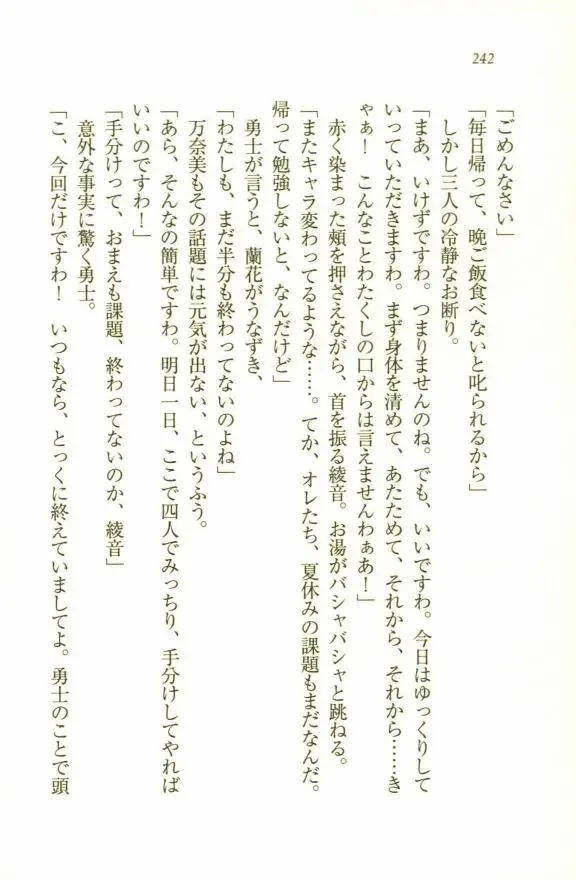 242
「ごめんなさい」
「毎日帰って、晩ご飯食べないと叱られるから」
しかし三人の冷静なお断り。
「まあ、いけずですわ。つまりませんのね。でも、いいですわ。今日はゆっくりして
いっていただきますわ。まず身体を清めて、あたためて、それから、それから……き
ゃぁ！　こんなことわたくしの口からは言えませんわぁあ！」
赤く染まった頰を押さえながら、首を振る綾音。お湯がバシャバシャと跳ねる。
「またキャラ変わってるような……。てか、オレたち、夏休みの課題もまだなんだ。
帰って勉強しないと、なんだけど」
勇士が言うと、蘭花がうなずき、
「わたしも、まだ半分も終わってないのよね」
万奈美もその話題には元気が出ない、というふう。
「あら、そんなの簡単ですわ。明日一日、ここで四人でみっちり、手分けしてやれば
いいのですわ！」
「手分けって、おまえも課題、終わってないのか、綾音」
意外な事実に驚く勇士。
「こ、今回だけですわ！　いつもなら、とっくに終えていましてよ。勇士のことで頭